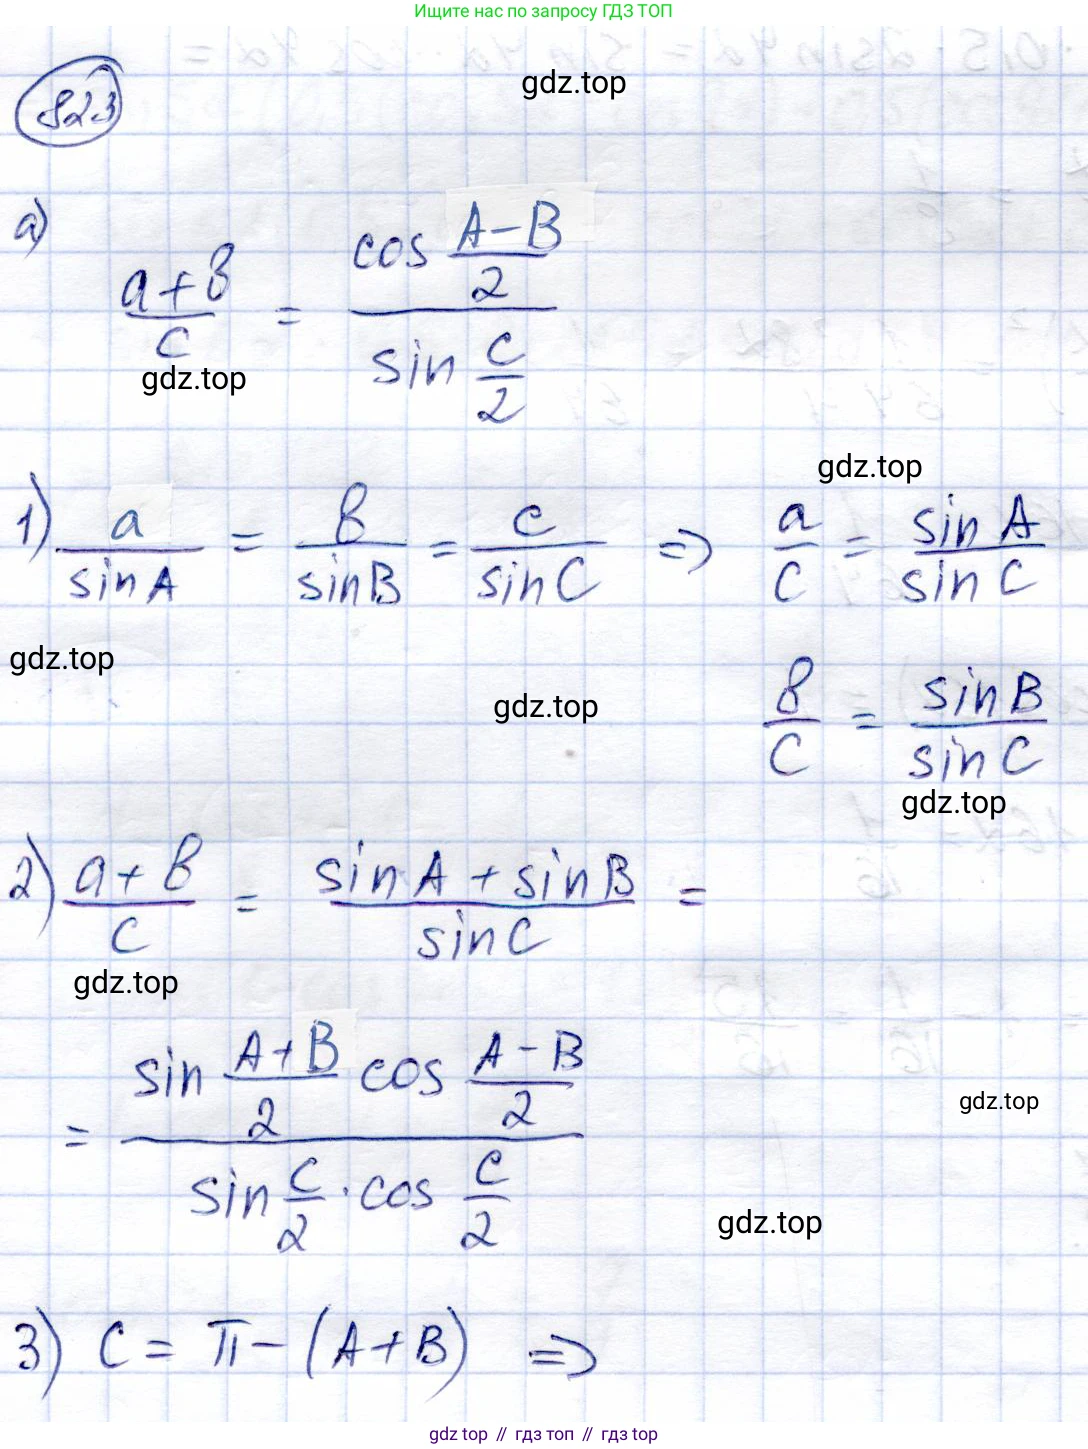 Ищите нас по запросу ГДЗ ТОП
823
gdz.top
а)
(a+b)/c = (cos (A-B)/2)/(sin C/2)
gdz.top
gdz.top
1) a/sinA = b/sinB = c/sinC => a/c = sinA/sinC
gdz.top
gdz.top
b/c = sinB/sinC
gdz.top
2) (a+b)/c = (sinA + sinB)/sinC =
gdz.top
= (sin (A+B)/2 cos (A-B)/2)/(sin C/2 · cos C/2)
gdz.top
gdz.top
3) C = π - (A+B) =>
gdz.top // гдз топ // гдз top